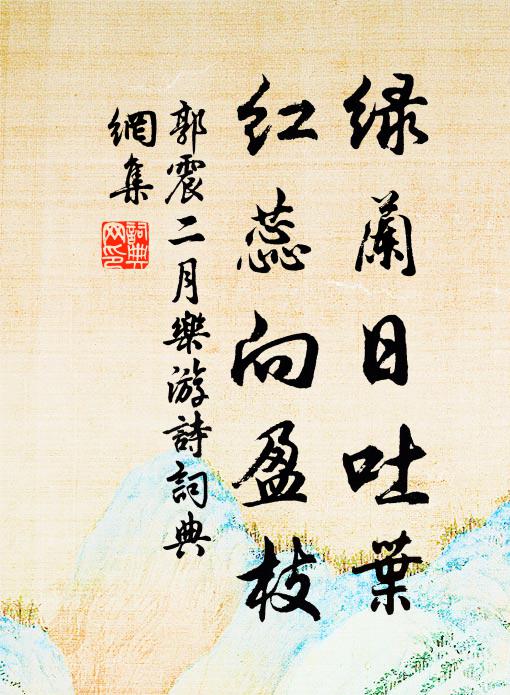 绿蘭日吐葉
红蕊向盈枝
郭震二月樂游詩詞典
網集
詞典
网印